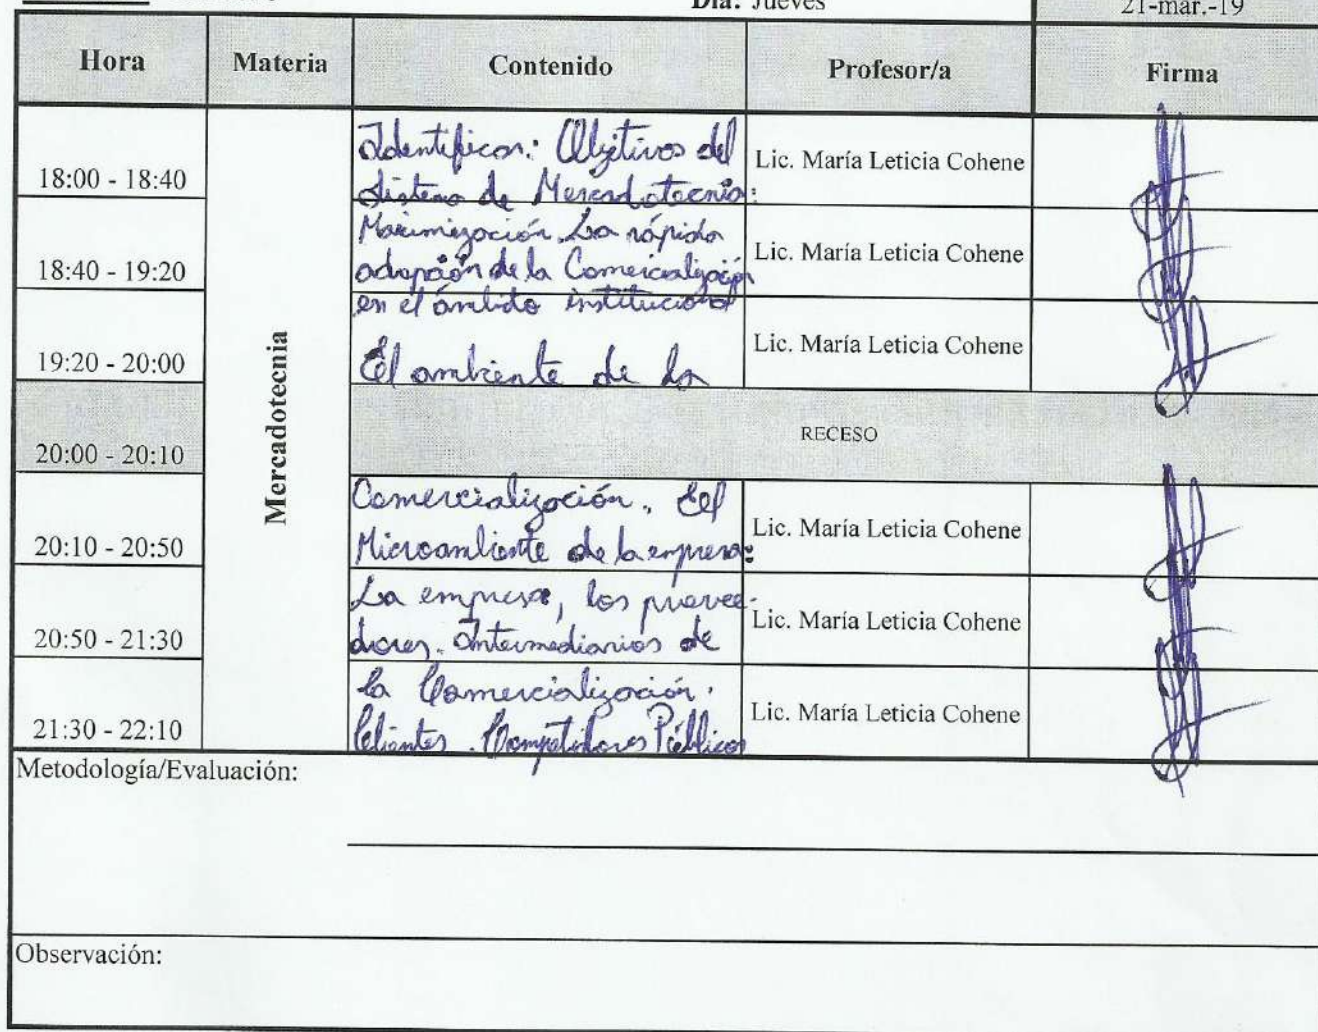 Día: Jueves
21-mar.-19
Hora Materia Contenido Profesor/a Firma
Mercadotecnia
18:00 - 18:40
Identificar: Objetivos del
Sistema de Mercadotecnia:
Lic. María Leticia Cohene
18:40 - 19:20
Maximización. La rápida
adopción de la Comercialización
Lic. María Leticia Cohene
19:20 - 20:00
en el ámbito institucional
El ambiente de la
Lic. María Leticia Cohene
20:00 - 20:10
RECESO
20:10 - 20:50
Comercialización. El
Microambiente de la empresa:
Lic. María Leticia Cohene
20:50 - 21:30
La empresa, los provee-
dores. Intermediarios de
Lic. María Leticia Cohene
21:30 - 22:10
la Comercialización.
Clientes. Competidores Públicos
Lic. María Leticia Cohene
Metodología/Evaluación:
Observación: